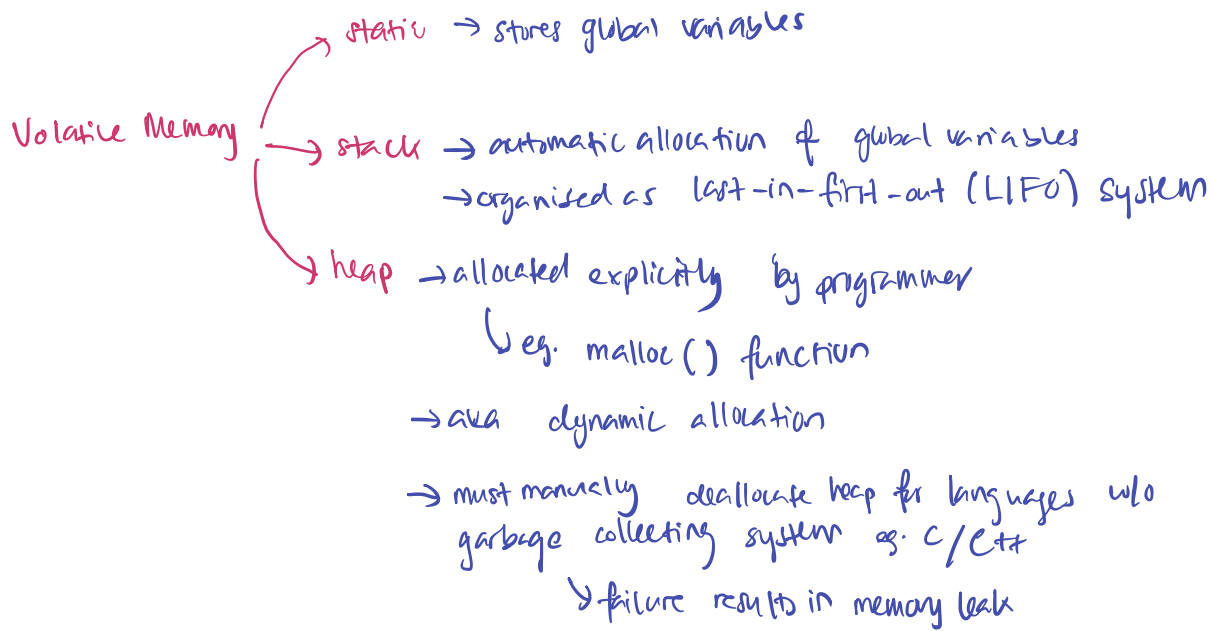 static → stores global variables
Volatile Memory
stack → automatic allocation of global variables
→ organised as last-in-first-out (LIFO) system
heap → allocated explicitly by programmer
↳ eg. malloc() function
→ aka dynamic allocation
→ must manually deallocate heap for languages w/o
garbage collecting system eg. C/C++
↳ failure results in memory leak